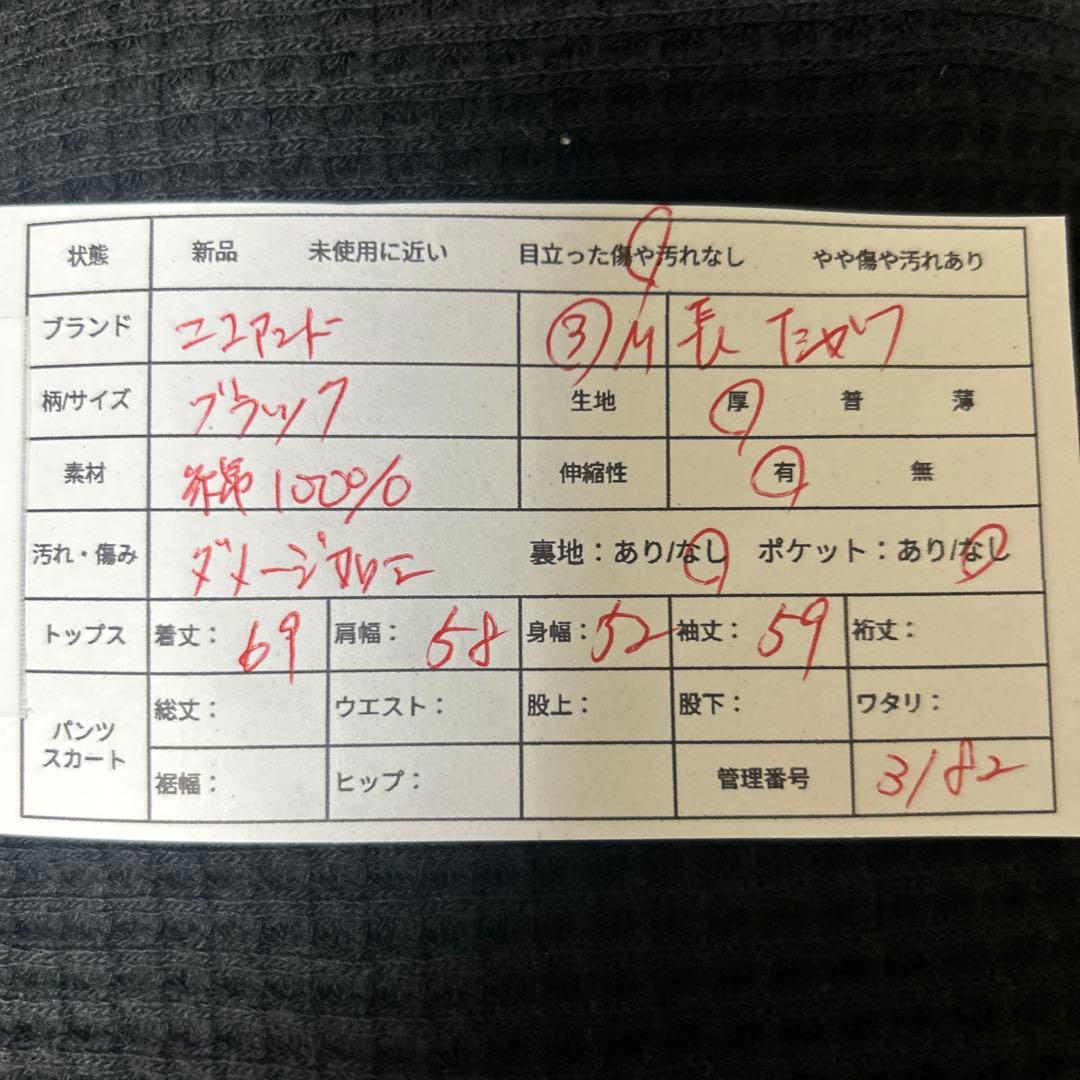 状態 新品 未使用に近い 目立った傷や汚れなし やや傷や汚れあり
ブランド ニコアンド ③ M 長
柄/サイズ ブラック 生地 厚 普 薄
素材 綿100% 伸縮性 有 無
汚れ・傷み ダメージ 裏地：あり/なし ポケット：あり/なし
トップス 着丈：69 肩幅：58 身幅：52 袖丈：59 裄丈：
パンツ スカート 総丈： ウエスト： 股上： 股下： ワタリ：
裾幅： ヒップ： 管理番号 3182